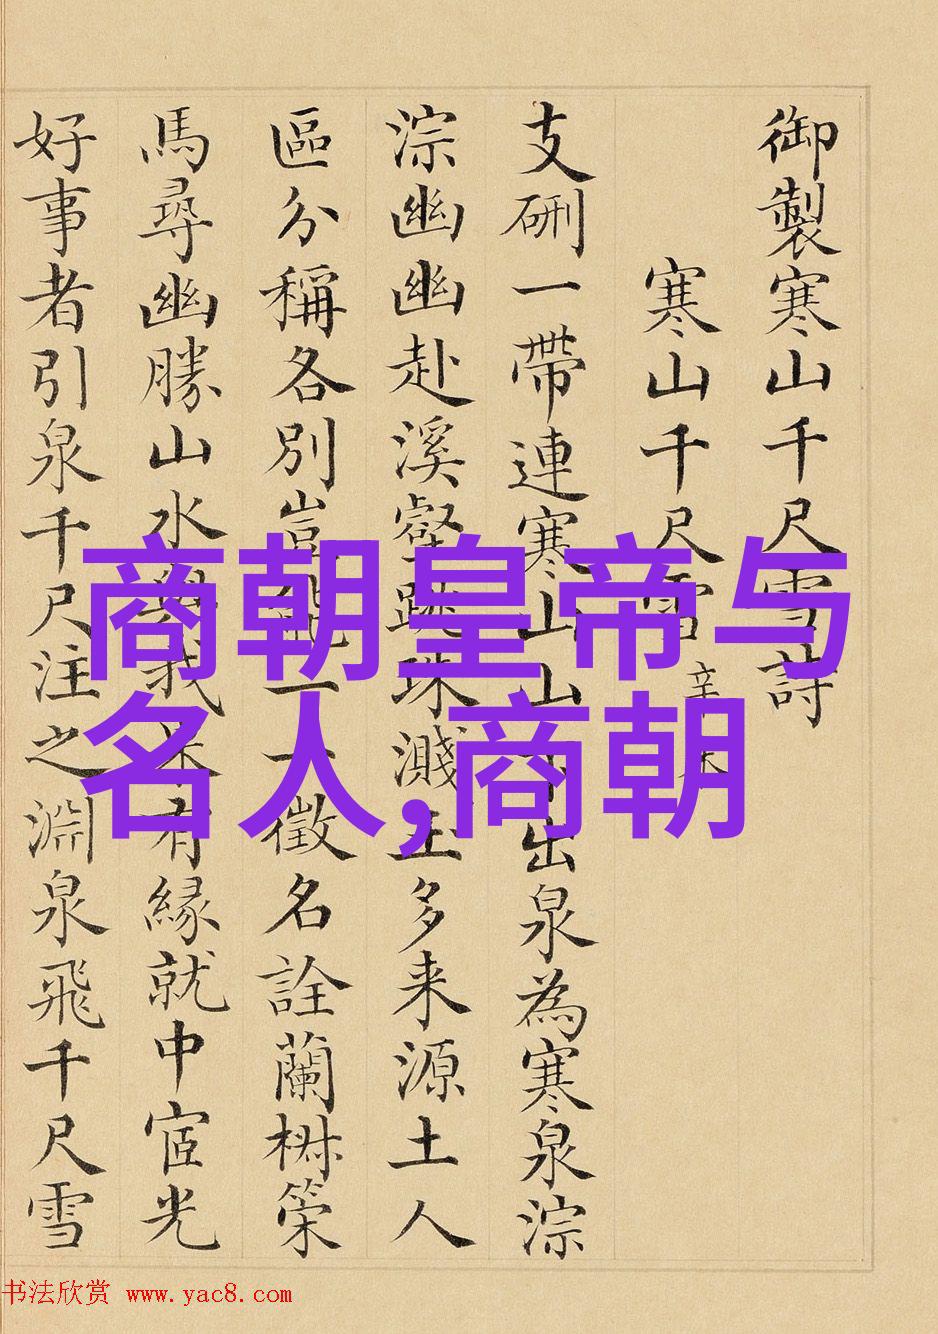 御製寒山千尺雪詩
寒山千尺雪 辛未
支硎一帶連寒山山中出泉為寒泉淙
淙幽幽赴溪壑跳珠濺玉多来源土人
區分稱各別豈能一一徵名詮蘭椒策
馬尋幽勝山水與我本有緣就中宧光
好事者引泉千尺注之淵泉飛千尺雪
商朝皇帝与
名人,商朝
书法欣赏 www.yac8.com